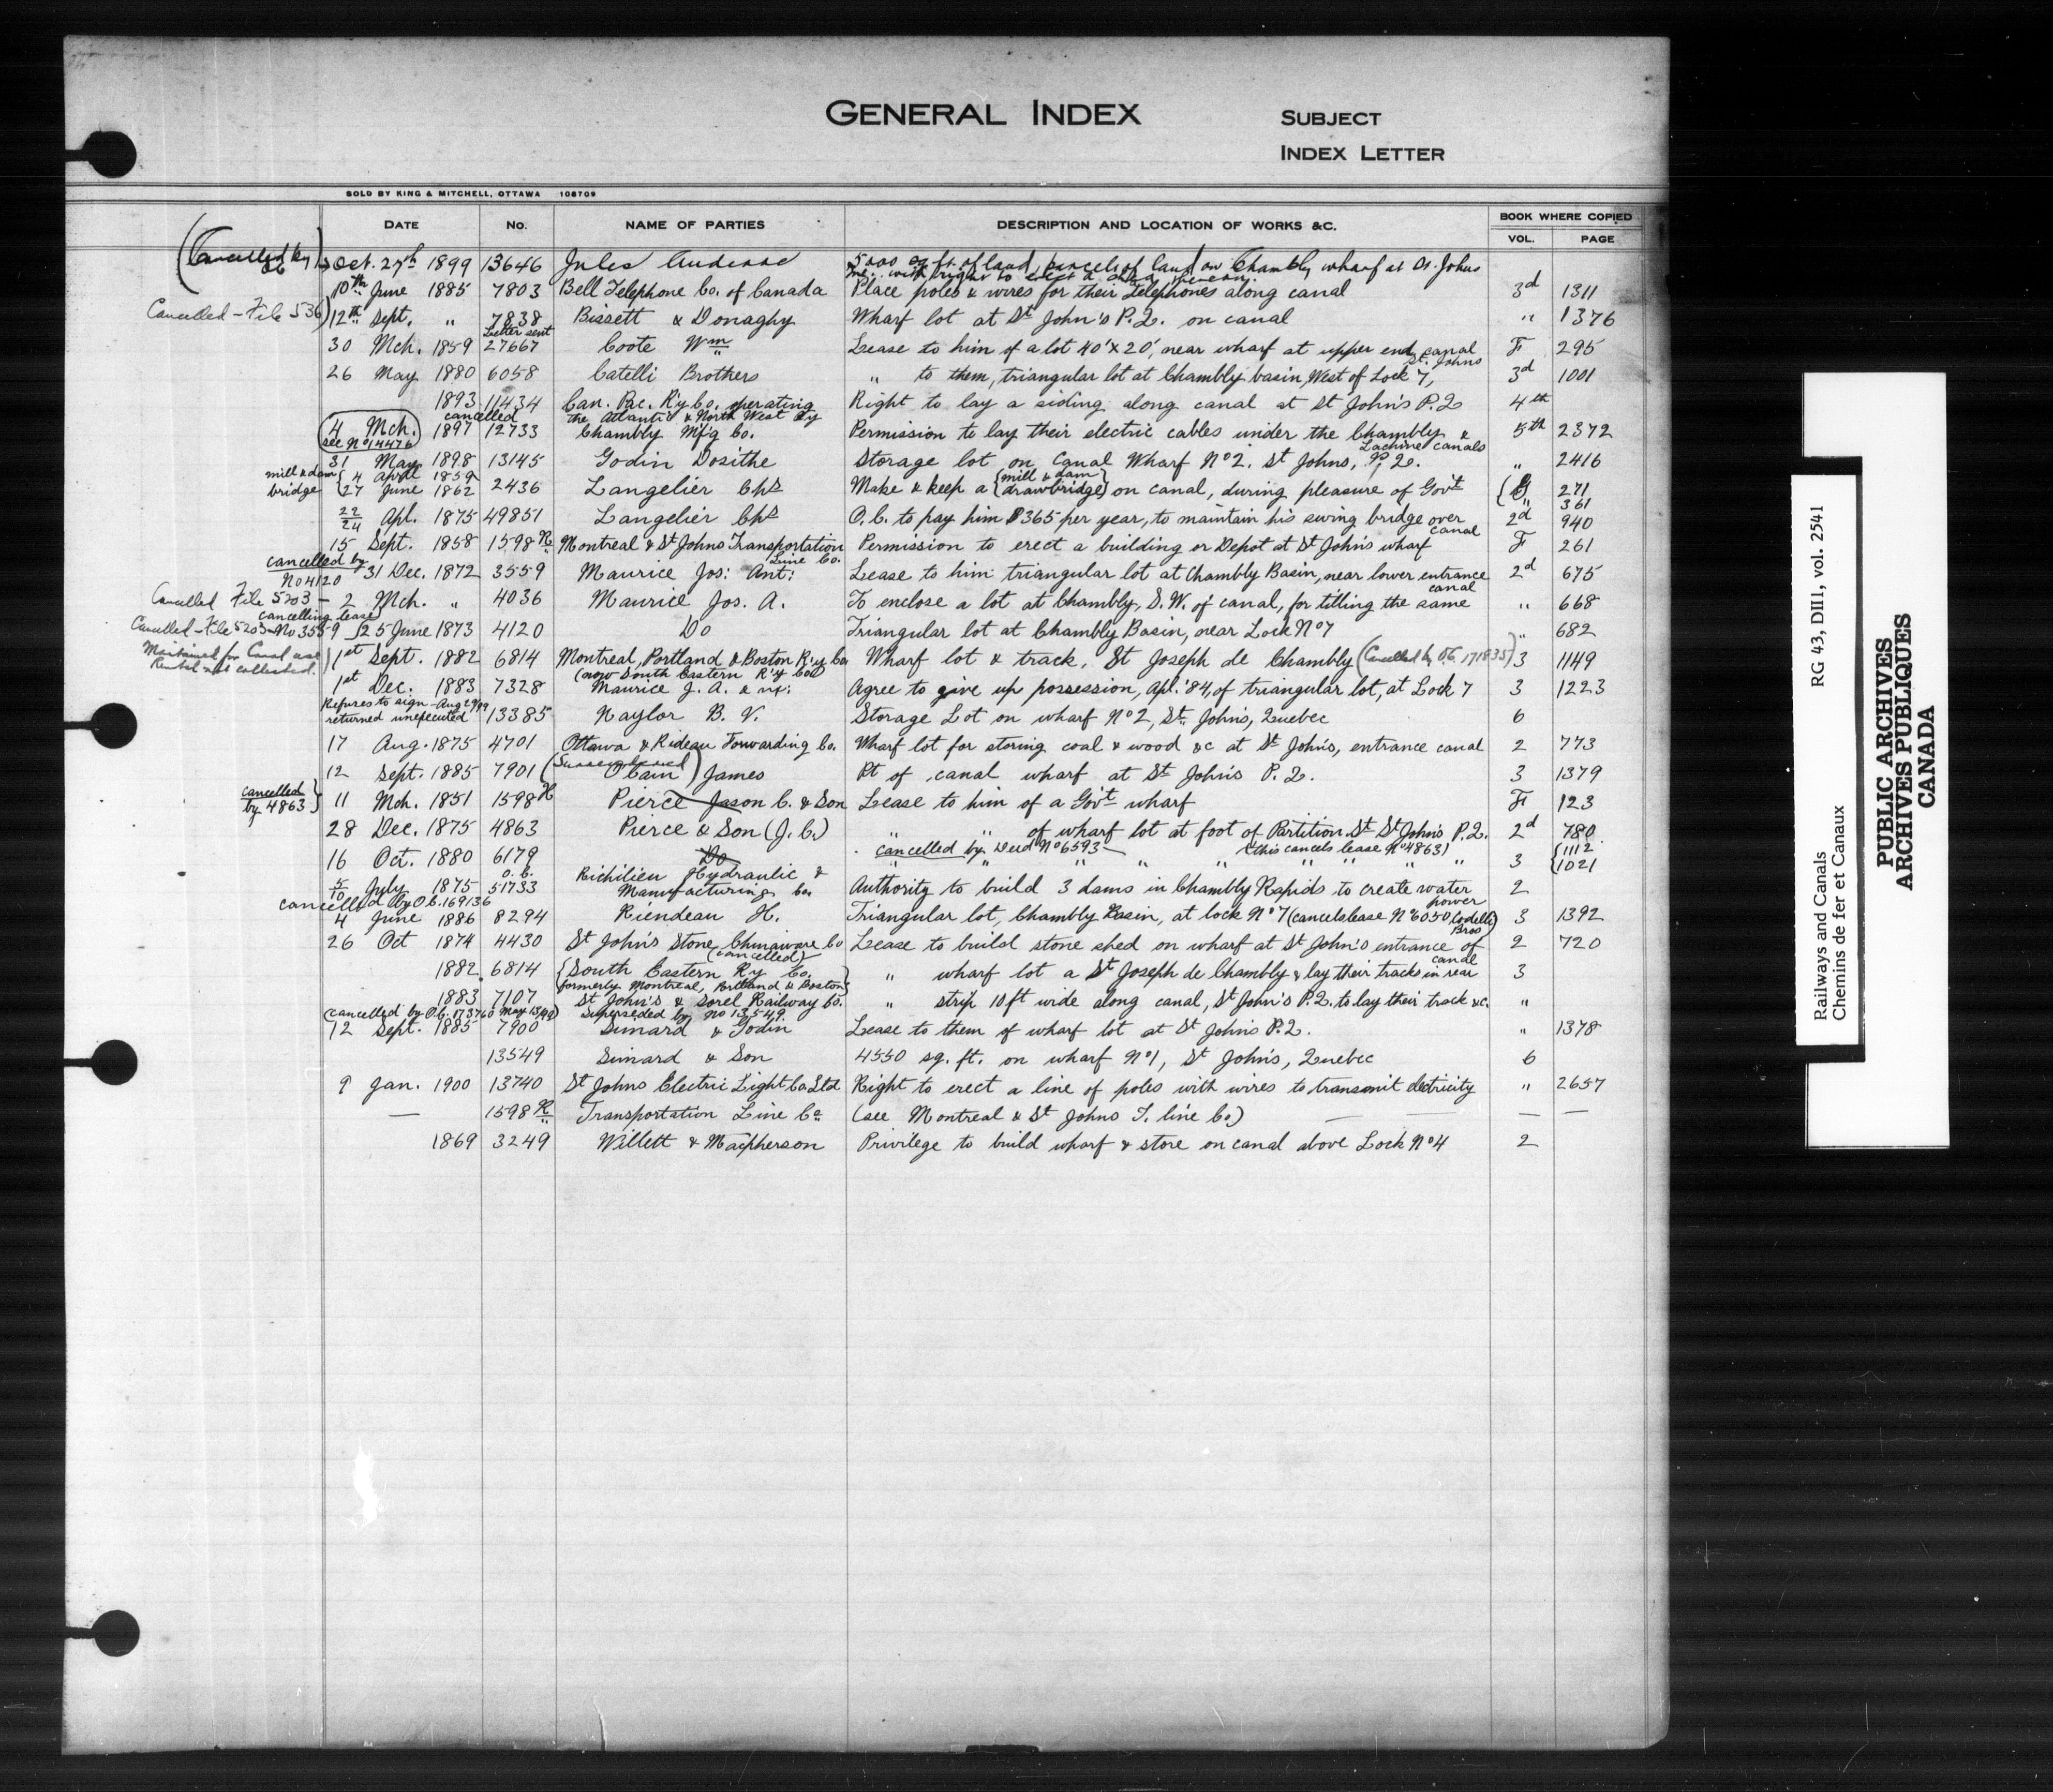 GENERAL INDEX
SUBJECT
INDEX LETTER
SOLD BY KING & MITCHELL, OTTAWA 108709
DATE NO. NAME OF PARTIES DESCRIPTION AND LOCATION OF WORKS &C. BOOK WHERE COPIED
VOL. PAGE
(Cancelled by)
Oct. 27th 1899 13646 Jules 5000 sq. ft. of land, parcels of land on Chambly wharf at St. Johns
with right to erect a shed thereon
10th June 1885 7803 Bell Telephone Co. of Canada Place poles & wires for their Telephones along canal 3d 1311
Cancelled - File 536) 12th Sept. " 7838 Bissett & Donaghy Wharf lot at St John's P.Q. on canal " 1376
Letter sent
30 Mch. 1859 27667 Coote Wm Lease to him of a lot 40' x 20', near wharf at upper end canal F 295
St. Johns
26 May 1880 6058 Catelli Brothers " to them, triangular lot at Chambly basin, West of Lock 7, 3d 1001
1893 11434 Can. Pac. R'y Co. operating Right to lay a siding along canal at St John's P.Q 4th
cancelled the Atlantic & North West Ry
4 Mch. 1897 12733 Chambly Mf'g Co. Permission to lay their electric cables under the Chambly & 5th 2372
see No 14476 Lachine canals
31 May 1898 13145 Godin Dosithe Storage lot on Canal Wharf No 2. St Johns, P.Q. " 2416
mill & dam { 4 April 1859 {mill & dam}
bridge 27 June 1862 2436 Langelier Chs Make & keep a {drawbridge} on canal, during pleasure of Govt { G 271
" 361
22/24 Apl. 1875 49851 Langelier Chs O.C. to pay him $365 per year, to maintain his swing bridge over 2d 940
canal
15 Sept. 1858 1598 R Montreal & St Johns Transportation Permission to erect a building or Depot at St John's wharf F 261
Line Co.
cancelled by
No 4120 31 Dec. 1872 3559 Maurice Jos: Ant: Lease to him triangular lot at Chambly Basin, near lower entrance 2d 675
canal
Cancelled File 5203 - 2 Mch. " 4036 Maurice Jos. A. To enclose a lot at Chambly, S.W. of canal, for tilling the same " 668
cancelling lease
Cancelled - File 5203 - No 3559 25 June 1873 4120 Do Triangular lot at Chambly Basin, near Lock No 7 " 682
Maintained for Canal use
Rental not collected. 1st Sept. 1882 6814 Montreal, Portland & Boston R'y Co Wharf lot & track, St Joseph de Chambly (Cancelled by O.C. 171835) 3 1149
(now South Eastern R'y Co)
1st Dec. 1883 7328 Maurice J. A. & ux: Agree to give up possession, Apl. '84, of triangular lot, at Lock 7 3 1223
Refuses to sign - Aug 29/99
returned unexecuted 13385 Naylor B. V. Storage Lot on wharf No 2, St. John's, Quebec 6
17 Aug. 1875 4701 Ottawa & Rideau Forwarding Co. Wharf lot for storing coal & wood &c at St John's, entrance canal 2 773
12 Sept. 1885 7901 (Surrendered) O'Cain James Pt of canal wharf at St John's P.Q. 3 1379
cancelled
by 4863 } 11 Mch. 1851 1598 H Pierce Jason C. & Son Lease to him of a Gov't wharf F 123
28 Dec. 1875 4863 Pierce & Son (J. C.) " " of wharf lot at foot of Partition St St John's P.Q. 2d 780
cancelled by Deed No 6593 (this cancels lease No 4863)
16 Oct. 1880 6179 Do " " " " " " " " 3 {1112
1021
O.C.
5/10 July 1875 51733 Richilieu Hydraulic & Manufacturing Co. Authority to build 3 dams in Chambly Rapids to create water 2
power
cancelled by O.C. 169136
4 June 1886 8294 Riendeau H. Triangular lot, Chambly Basin, at lock No 7 (cancels lease No 6050 Bros) 3 1392
26 Oct 1874 4430 St John's Stone Chinaware Co Lease to build stone shed on wharf at St John's entrance of 2 720
(cancelled) canal
1882 6814 {South Eastern Ry Co. " wharf lot a St Joseph de Chambly & lay their tracks in rear 3
formerly Montreal, Portland & Boston}
1883 7107 St John's & Sorel Railway Co. " strip 10 ft wide along canal, St John's P.Q. to lay their track &c. "
(cancelled by O.C. 173760 May 13/99) Superseded by no 13,549.
12 Sept. 1885 7900 Simard & Godin Lease to them of wharf lot at St John's P.Q. " 1378
13549 Simard & Son 4550 sq. ft. on wharf No 1, St John's, Quebec 6
9 Jan. 1900 13740 St Johns Electric Light Co Ltd Right to erect a line of poles with wires to transmit electricity " 2657
— 1598 R Transportation Line Co. (see Montreal & St Johns T. line Co.) — — —
1869 3249 Willett & Macpherson Privilege to build wharf & store on canal above Lock No 4 2
Railways and Canals
Chemins de fer et Canaux
RG 43, DII1, vol. 2541
PUBLIC ARCHIVES
ARCHIVES PUBLIQUES
CANADA